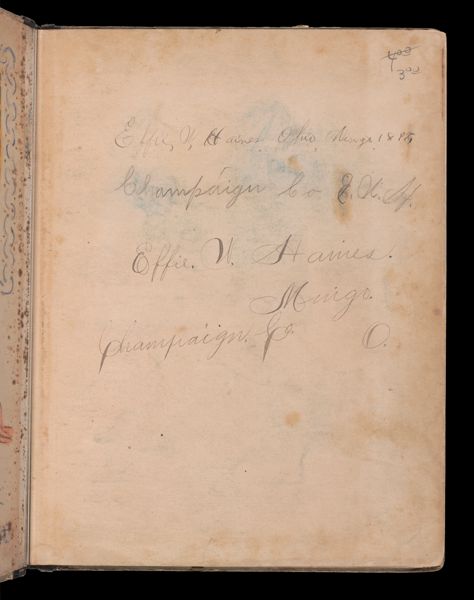 4.00
3.00
Effie, V, Haines Ohio Mingo 18
Champaign Co E.
Effie. V. Haines.
Mingo.
Champaign. Co. O.